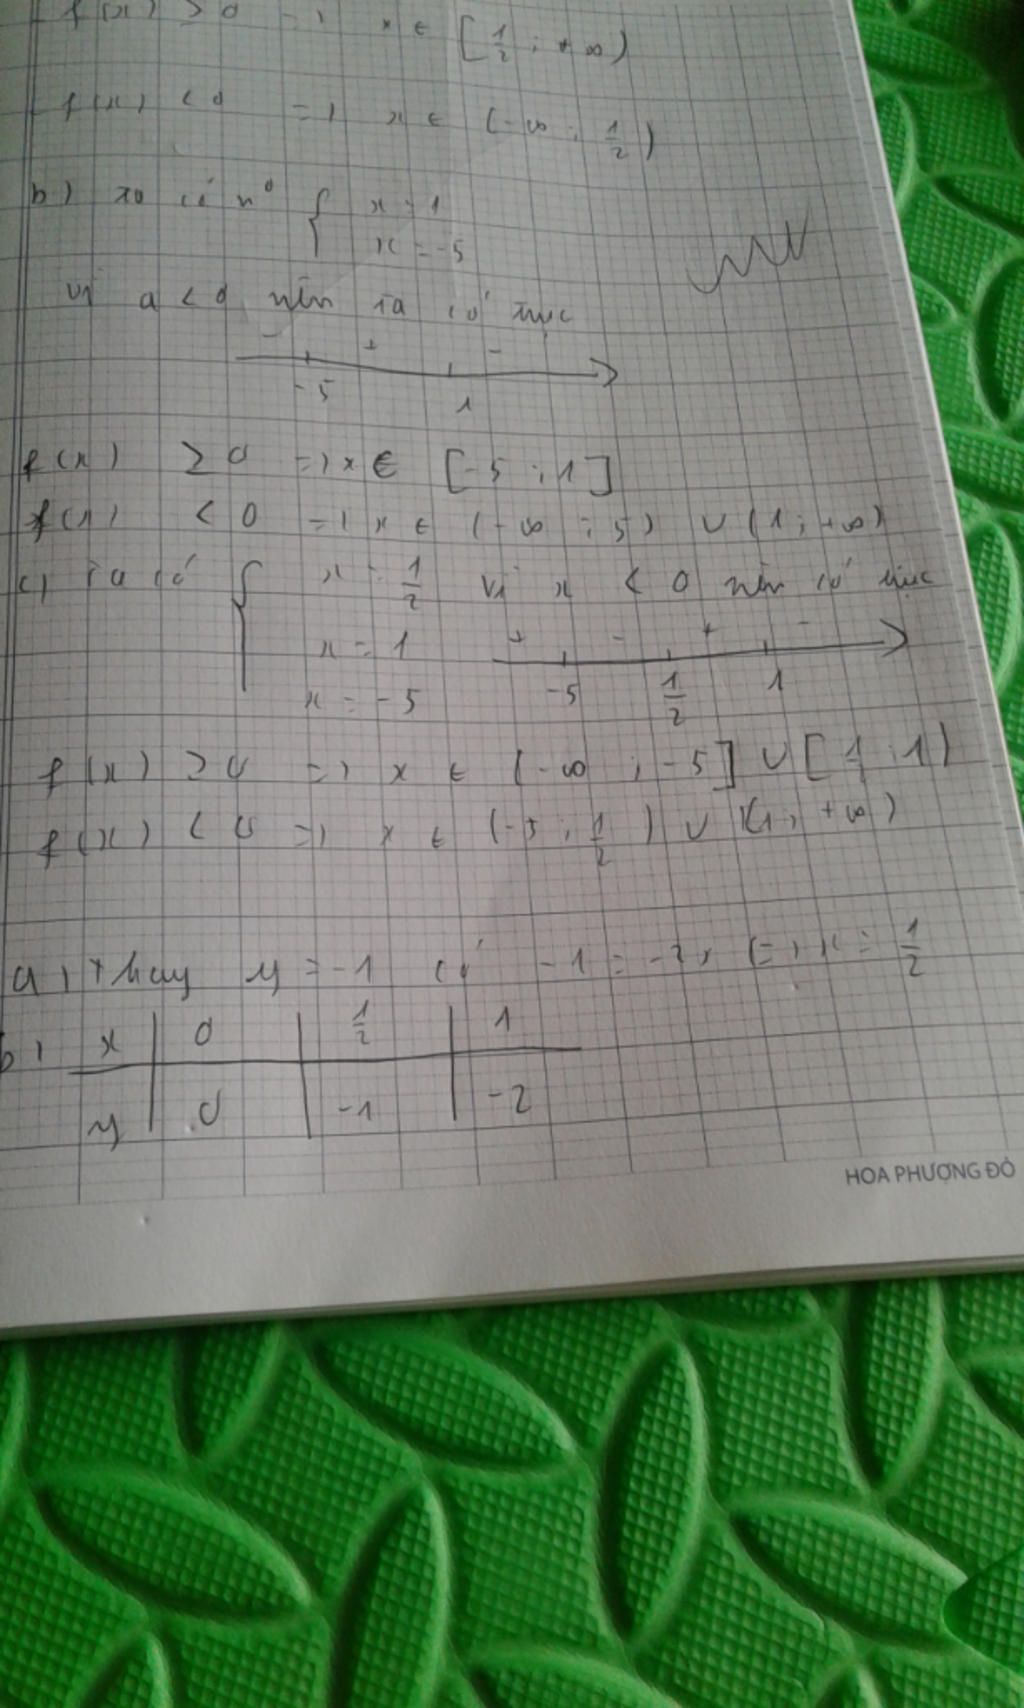 f(x) > 0 => x ∈ [1/2 ; +∞)
f(x) < 0 => x ∈ (-∞ ; 1/2)
b) có n⁰ { x = 1
x = -5
Vì a < 0 nên ta có trục
- + -
-5 1
f(x) ≥ 0 => x ∈ [-5 ; 1]
f(x) < 0 => x ∈ (-∞ ; 5) ∪ (1 ; +∞)
c) ta có { x = 1/2 Vì x < 0 nên có trục
x = 1 + - + -
x = -5 -5 1/2 1
f(x) ≥ 0 => x ∈ (-∞ ; -5] ∪ [ 1/2 ; 1)
f(x) < 0 => x ∈ (-5 ; 1/2) ∪ (1 ; +∞)
a) thay y = -1 có -1 = -2x (=) x = 1/2
b) x | 0 | 1/2 | 1
y | 0 | -1 | -2
HOA PHƯỢNG ĐỎ